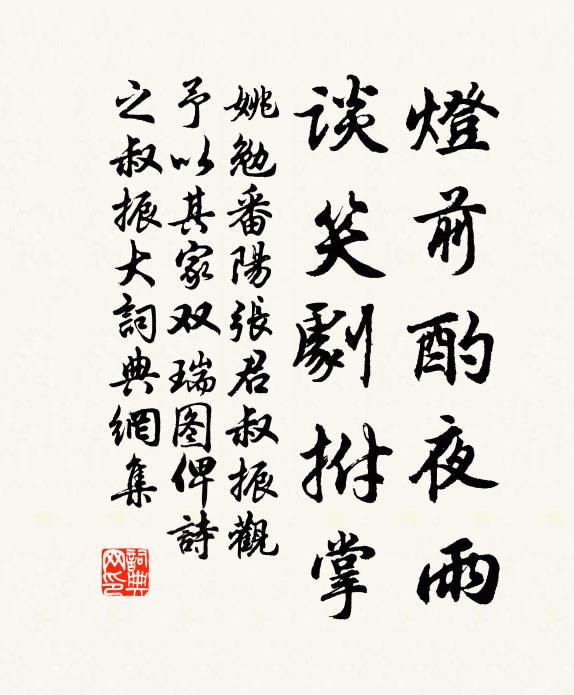 燈前酌夜雨
談笑劇拊掌
姚勉番陽張君叔振觀
予以其家双瑞图俾詩
之叔振大詞典網集
詞典网印